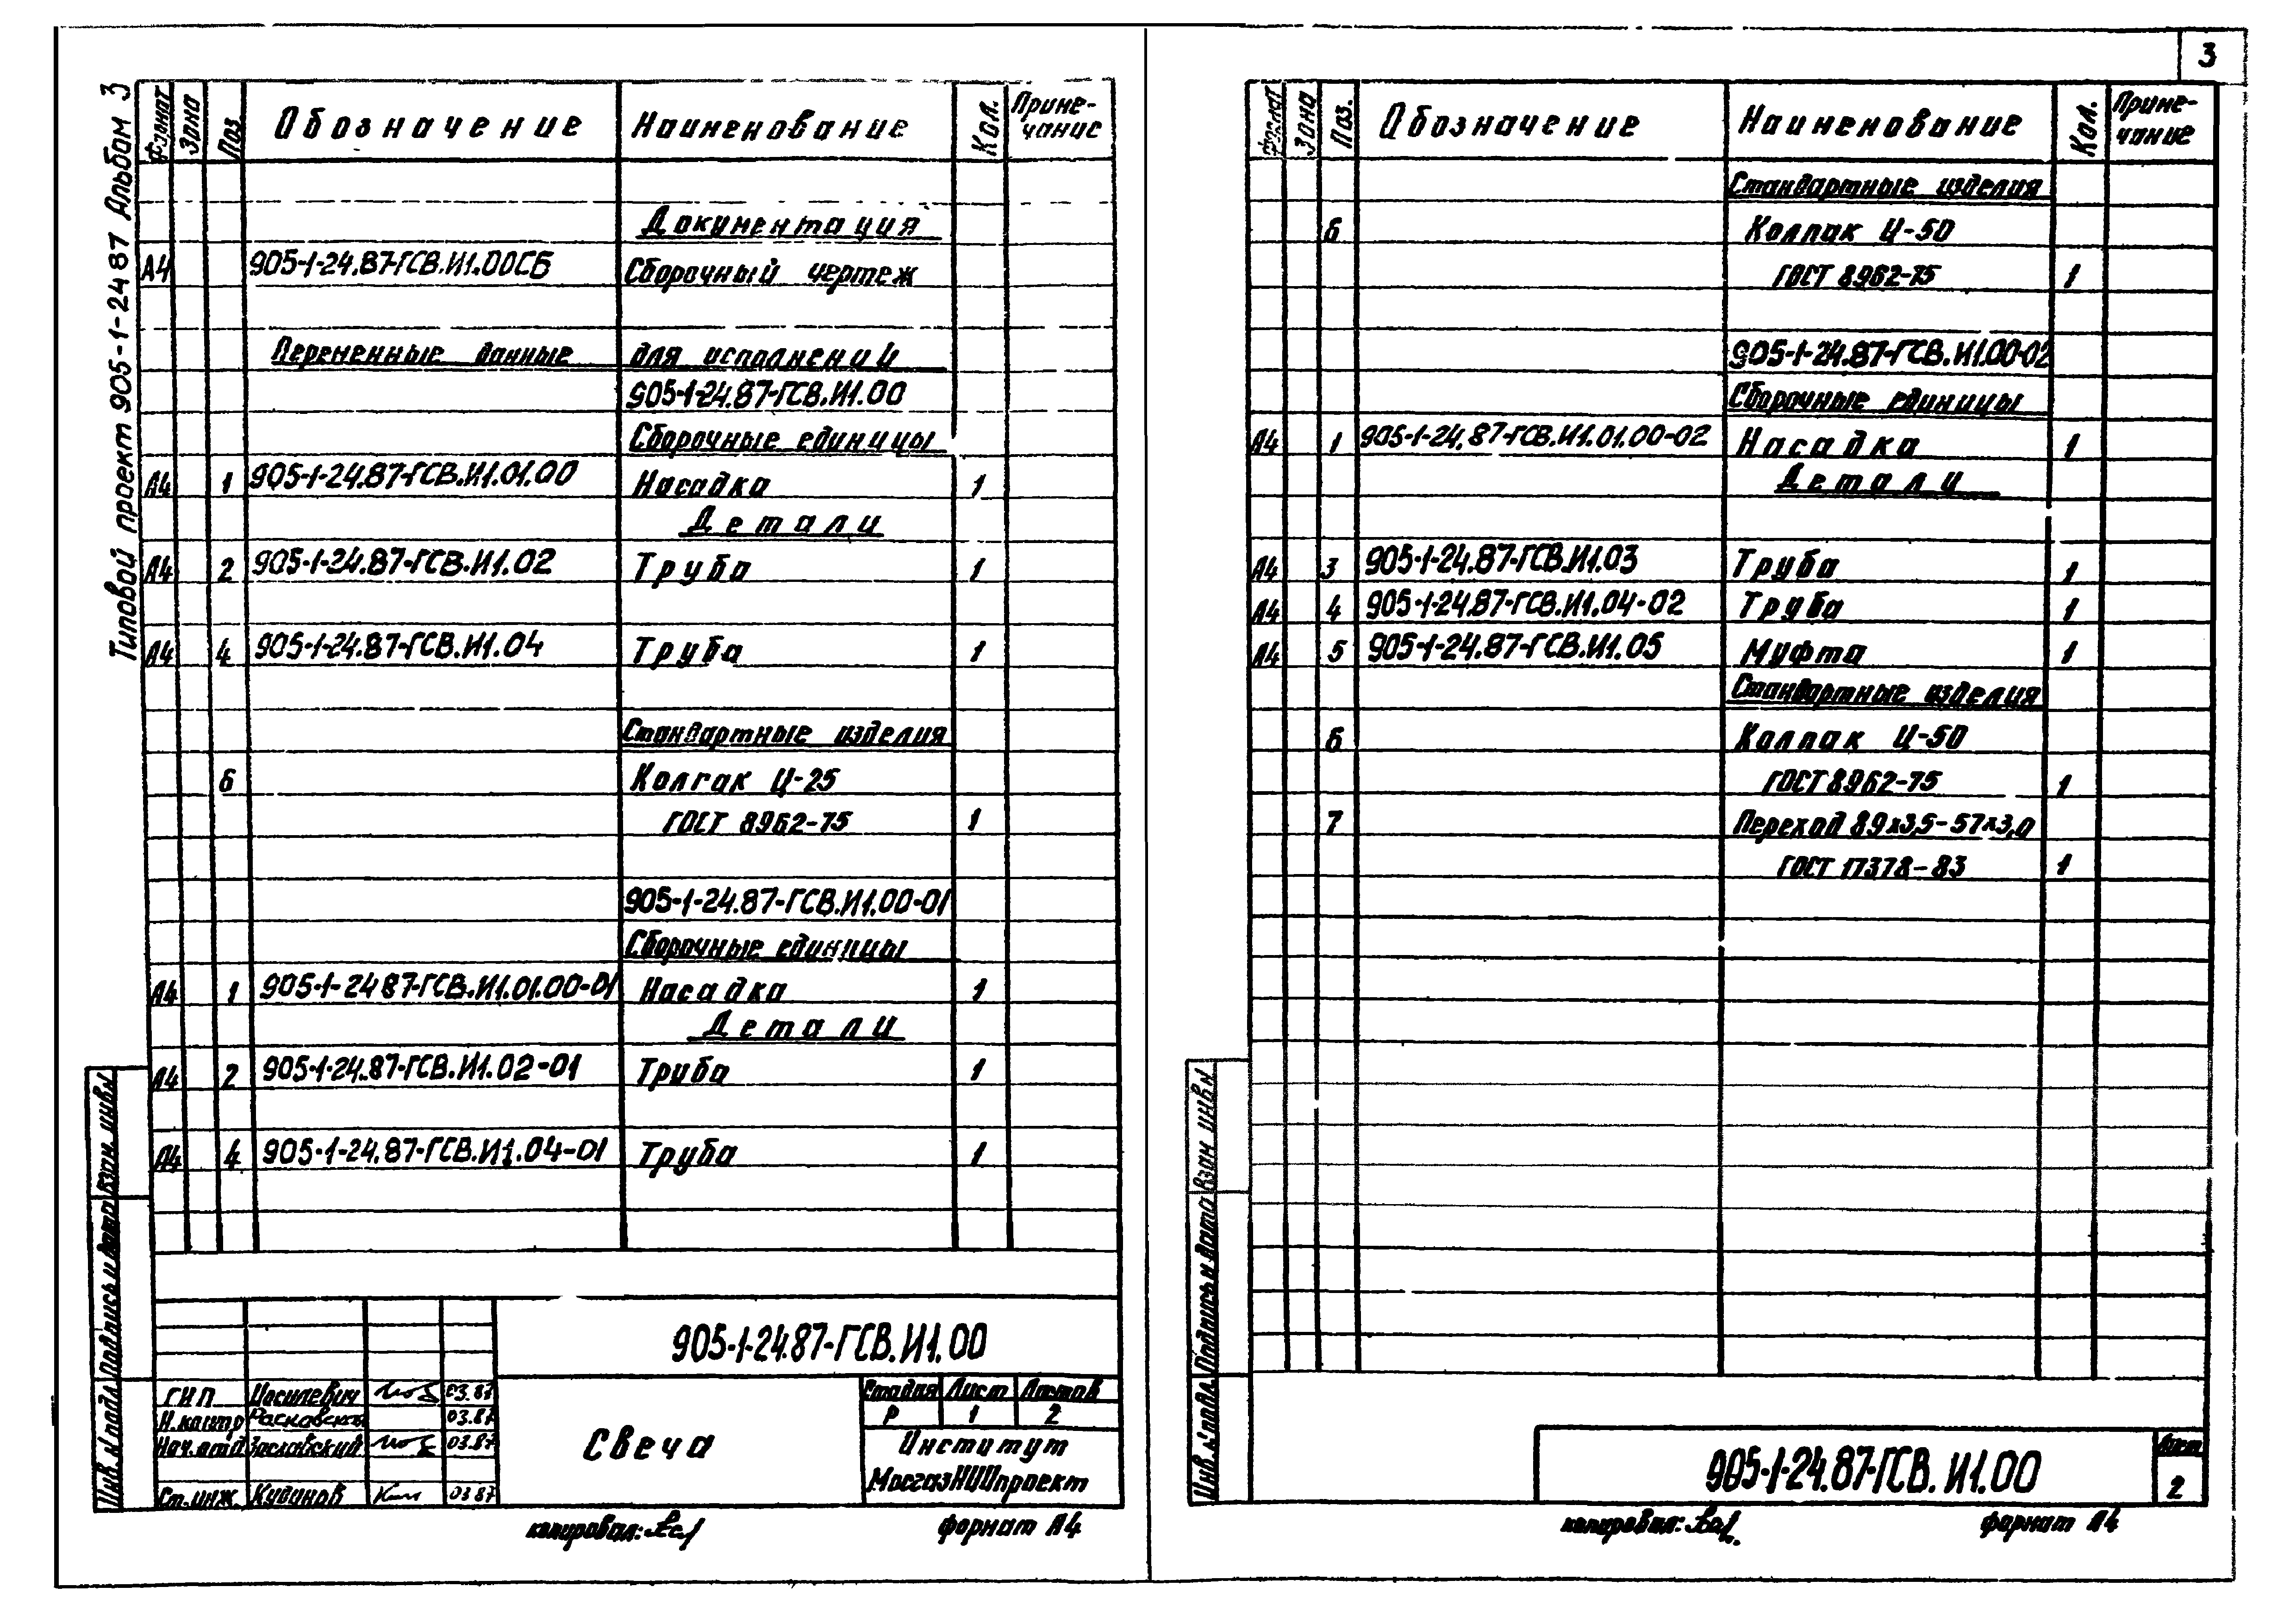 3
Типовой проект 905-1-24 87 Альбом 3
Формат Зона Поз. Обозначение Наименование Кол. Приме-
чание
Документация
А4 905-1-24.87-ГСВ.И1.00СБ Сборочный чертеж
Переменные данные для исполнений
905-1-24.87-ГСВ.И1.00
Сборочные единицы
А4 1 905-1-24.87-ГСВ.И1.01.00 Насадка 1
Детали
А4 2 905-1-24.87-ГСВ.И1.02 Труба 1
А4 4 905-1-24.87-ГСВ.И1.04 Труба 1
Стандартные изделия
6 Колпак Ц-25
ГОСТ 8962-75 1
905-1-24.87-ГСВ.И1.00-01
Сборочные единицы
А4 1 905-1-24 87-ГСВ.И1.01.00-01 Насадка 1
Детали
А4 2 905-1-24.87-ГСВ.И1.02-01 Труба 1
А4 4 905-1-24.87-ГСВ.И1.04-01 Труба 1
Инв. N подл Подпись и дата Взам. инв N
905-1-24.87-ГСВ.И1.00
ГИП Иосилевич 03.87
Н.контр 03.87
Нач.отд Заславский 03.87
Ст.инж Кудинов 03 87
Свеча
Стадия Лист Листов
Р 1 2
Институт
МосгазНИИпроект
копировал: формат А4
Формат Зона Поз. Обозначение Наименование Кол. Приме-
чание
Стандартные изделия
6 Колпак Ц-50
ГОСТ 8962-75 1
905-1-24.87-ГСВ.И1.00-02
Сборочные единицы
А4 1 905-1-24.87-ГСВ.И1.01.00-02 Насадка 1
Детали
А4 3 905-1-24.87-ГСВ.И1.03 Труба 1
А4 4 905-1-24.87-ГСВ.И1.04-02 Труба 1
А4 5 905-1-24.87-ГСВ.И1.05 Муфта 1
Стандартные изделия
6 Колпак Ц-50
ГОСТ 8962-75 1
7 Переход 89х3,5-57х3,0
ГОСТ 17378-83 1
Инв. N подл. Подпись и дата Взам инв N
905-1-24.87-ГСВ.И1.00
Лист
2
копировал: формат А4